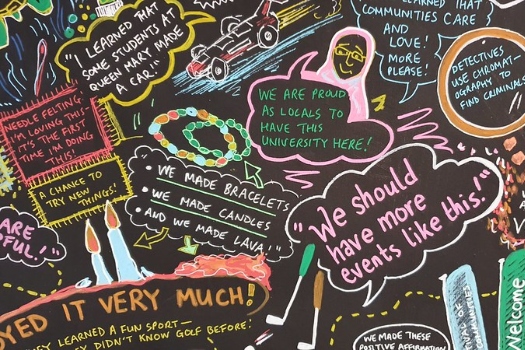 "I LEARNED THAT
SOME STUDENTS AT
QUEEN MARY MADE
A CAR!"
LEARNED THAT
COMMUNITIES CARE
AND
LOVE!
MORE
PLEASE!
DETECTIVES
USE CHROMAT-
OGRAPHY TO
FIND CRIMINAL
WE ARE PROUD
AS LOCALS TO
HAVE THIS
UNIVERSITY HERE!
NEEDLE FELTING
I'M LOVING THIS
IT'S THE FIRST
TIME I'M DOING
THIS!
A CHANCE TO
TRY NEW
THINGS!
• WE MADE BRACELETS
• WE MADE CANDLES
• AND WE MADE LAVA!
"We should
have more
events like this!"
ARE
FUL!
OYED IT VERY MUCH!
THEY LEARNED A FUN SPORT—
THEY DIDN'T KNOW GOLF BEFORE!
WE MADE THESE
POSITIVE AFFIRMATION
Welcome